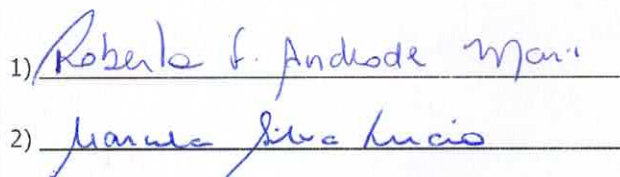 1) Roberta F. Andrade Mari
2) Marcela Silva Lucio